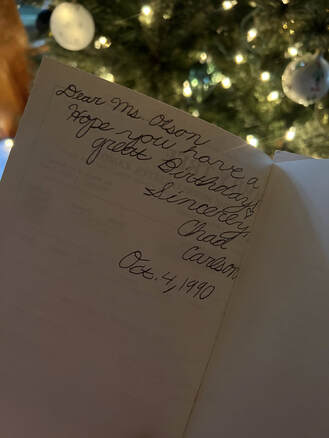 Dear Ms. Olson
Hope you have a
great Birthday!
Sincerely
Chad
Carlson
Oct. 4, 1990